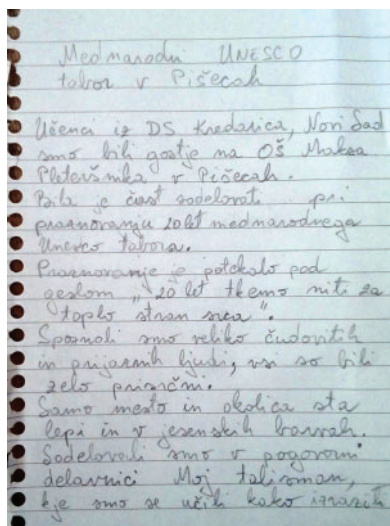 Mednarodni UNESCO
tabor v Pišecah
Učenci iz DS Kredarica, Novi Sad
smo bili gostje na OŠ Maksa
Pleteršnika v Pišecah.
Bila je čast sodelovati pri
praznovanju 20 let mednarodnega
Unesco tabora.
Praznovanje je potekalo pod
geslom „20 let tkemo niti za
toplo stran srca".
Spoznali smo veliko čudovitih
in prijaznih ljudi, vsi so bili
zelo prisrčni.
Samo mesto in okolica sta
lepi in v jesenskih barvah.
Sodelovali smo v pogovorni
delavnici Moj talisman,
kje smo se učili kako izraziti